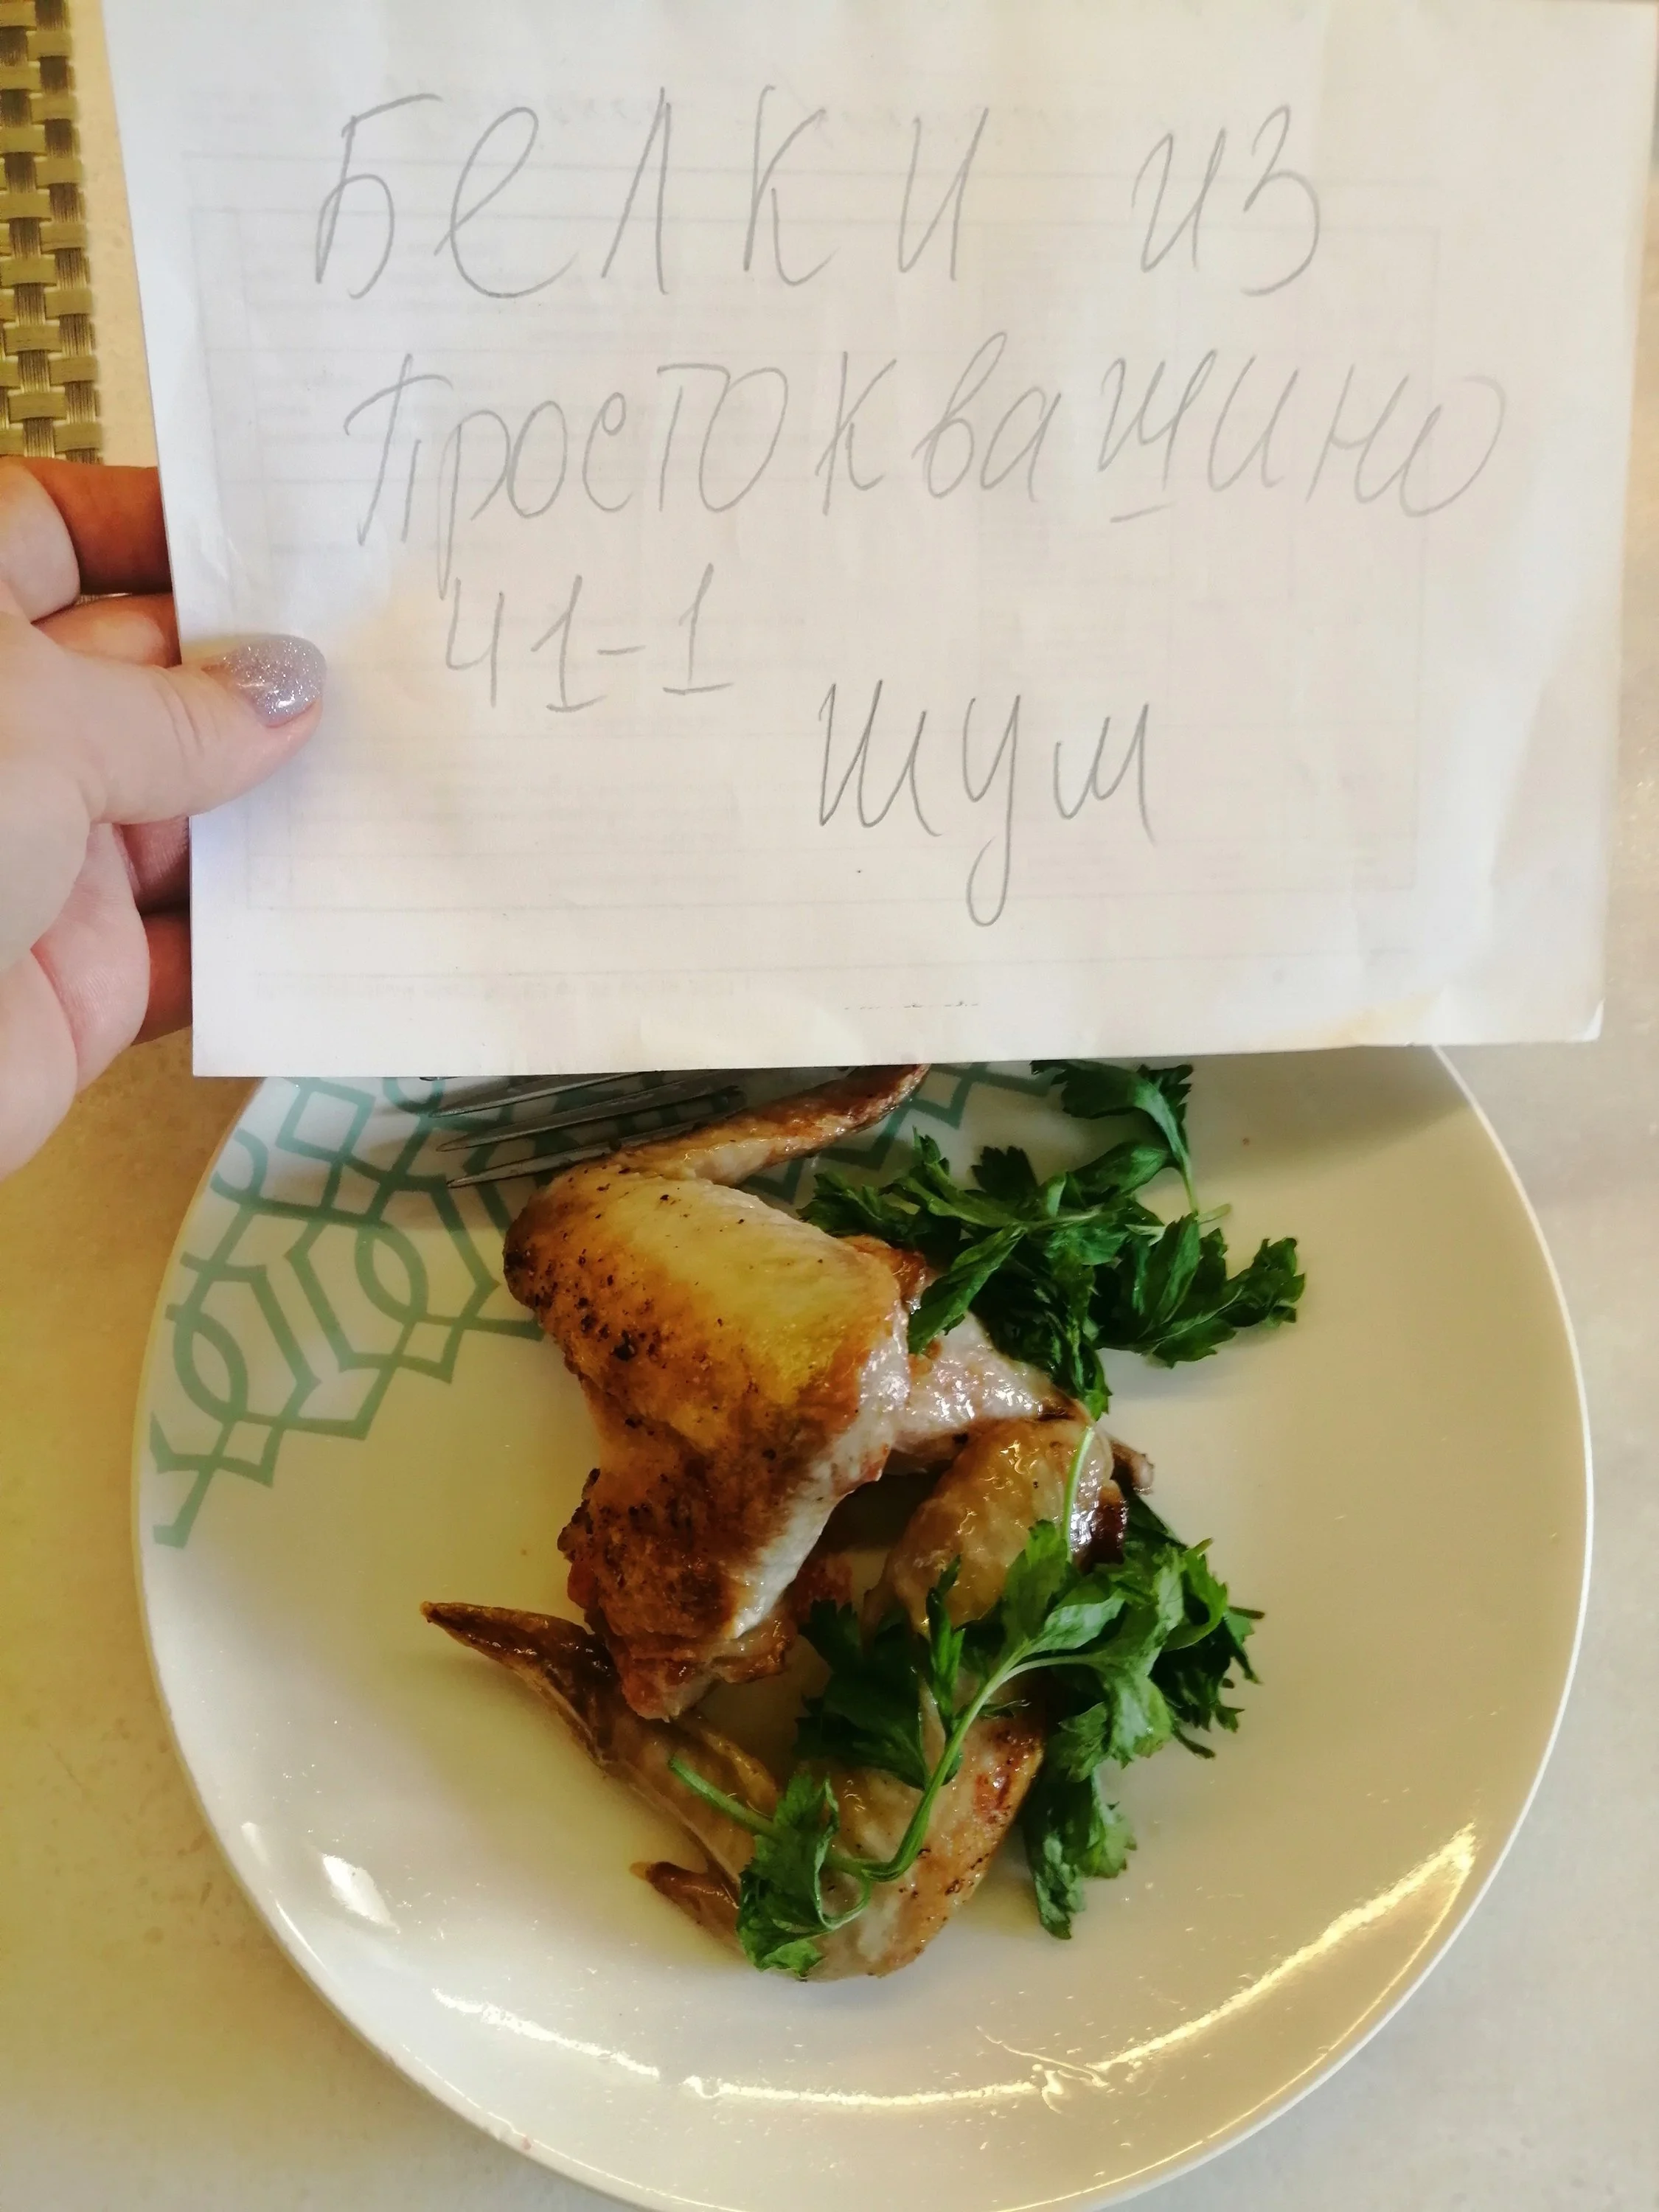 Белки из
Простоквашино
41-1
шум